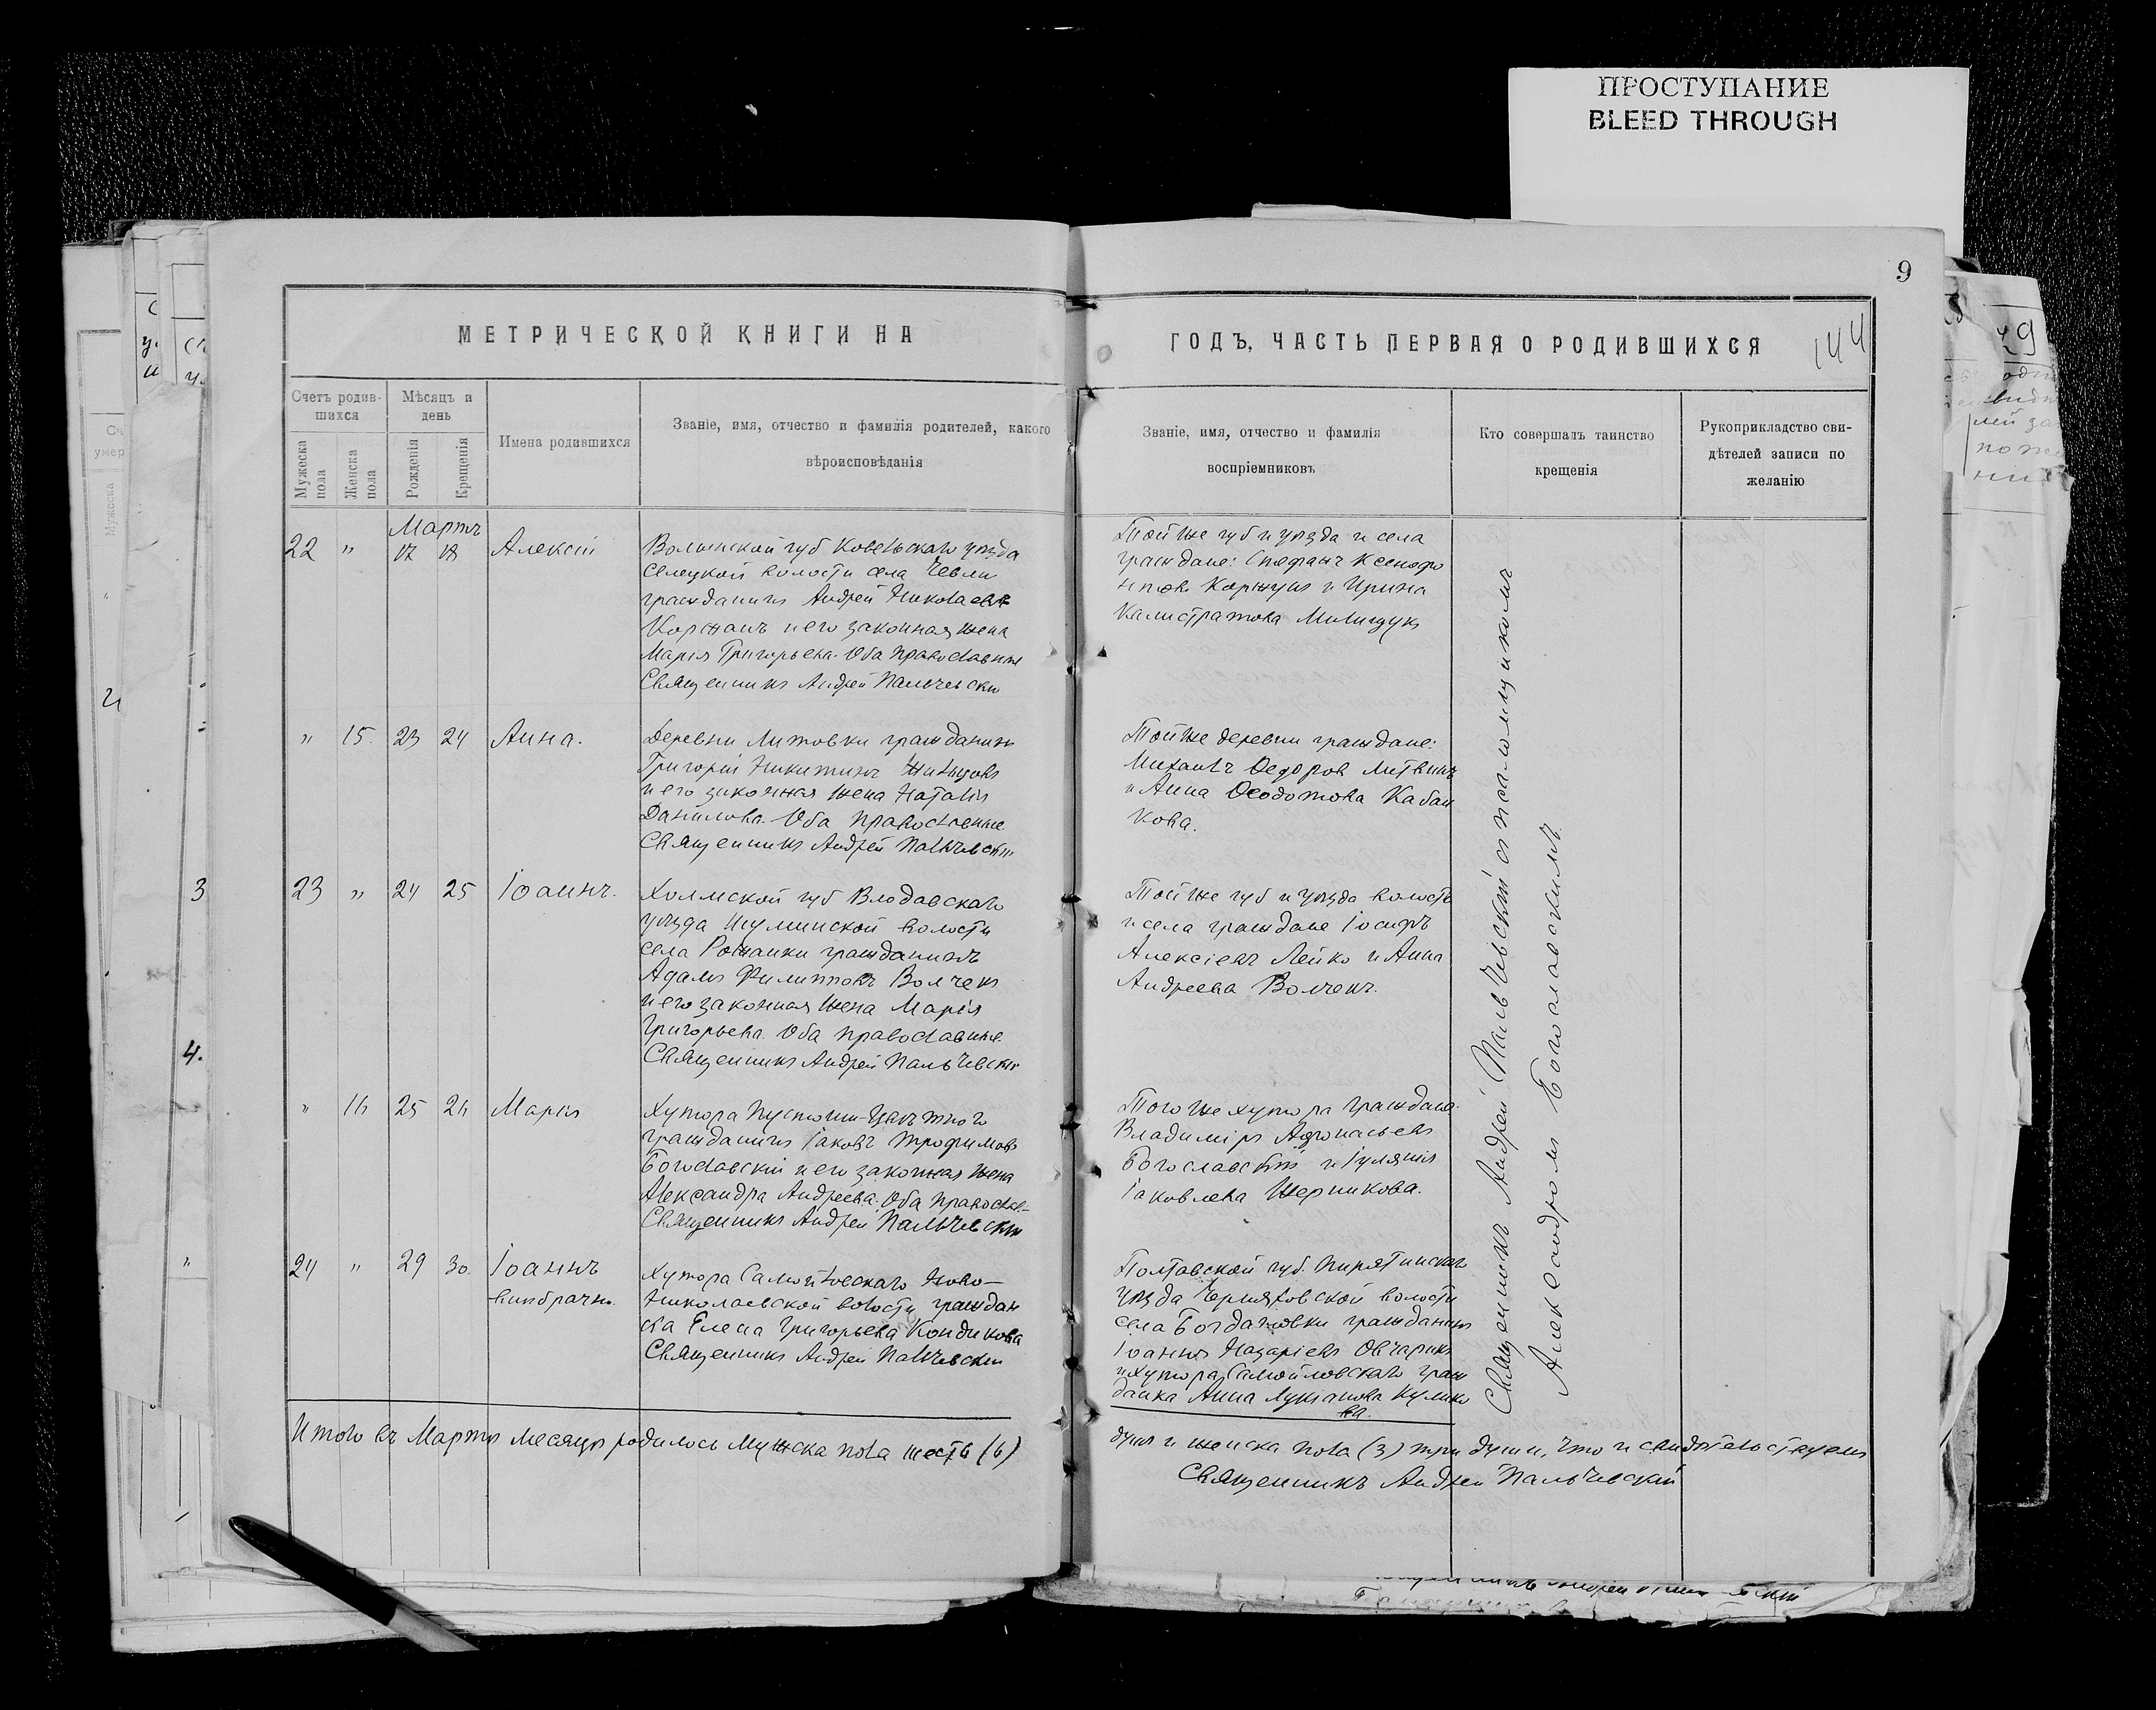 ПРОСТУПАНИЕ
BLEED THROUGH
9
МЕТРИЧЕСКОЙ КНИГИ НА
ГОДЪ, ЧАСТЬ ПЕРВАЯ О РОДИВШИХСЯ
144
Счетъ родив-
шихся
Мѣсяцъ и
день
Мужеска
пола
Женска
пола
Рожденія
Крещенія
Имена родившихся
Званіе, имя, отчество и фамилія родителей, какого
вѣроисповѣданія
Званіе, имя, отчество и фамилія
воспріемниковъ
Кто совершалъ таинство
крещенія
Рукоприкладство сви-
дѣтелей записи по
желанію
Мартъ
22 " 17 18 Алексій
Волынской губ Ковельскаго уѣзда
Селецкой волости села
гражданинъ Андрей Николаевъ
Коржанъ и его законная жена
Марія Григорьева. Оба православные
Священникъ Андрей Пальчевскій
Той же губ и уѣзда и села
граждане: Стефанъ Ксенофо
нтовъ и Ирина
Калистратова Милищукъ
" 15. 23 24 Анна.
Деревни Литовки гражданинъ
Григорій Никитинъ
и его законная жена Наталія
Данилова. Оба православные
Священникъ Андрей Пальчевскій
Той же деревни граждане:
Михаилъ Ѳедоров Литвинъ
и Анна Ѳеодотова Кабан
кова.
23 " 24 25 Іоаннъ.
Холмской губ Влодавскаго
уѣзда волости
села Рожанки гражданинъ
Адамъ Филипповъ Волчекъ
и его законная жена Марія
Григорьева. Оба православные
Священникъ Андрей Пальчевскій
Той же губ и уѣзда волости
и села граждане Іосифъ
Алексіевъ Лейко и Анна
Андреева Волчекъ.
" 16 25 26 Марія
Хутора
гражданинъ Іаковъ Трофимовъ
Богославскій и его законная жена
Александра Андреева. Оба православ-
Священникъ Андрей Пальчевскій
Того же хутора граждане.
Владиміръ Афонасьевъ
Богославскій и
Іаковлева
24 " 29 30. Іоаннъ
внибрачн.
Хутора Самойловскаго Ново-
николаевской волости граждан
ка Елена Григорьева Кондикова
Священникъ Андрей Пальчевскій
Полтавской губ. Пирятинскаго
уѣзда волости
села Богдановки гражданинъ
Іоаннъ Назаріевъ Овчарикъ
и хутора Самойловскаго граж
данка Анна Лукіанова Кулико
ва.
Священникъ Андрей Пальчевскій съ псаломщикомъ
Александромъ Богославскимъ.
Итого въ Мартѣ месяцѣ родилось мужска пола шесть (6)
душъ и женска пола (3) три души, что и свидѣтельствуемъ
Священникъ Андрей Пальчевскій